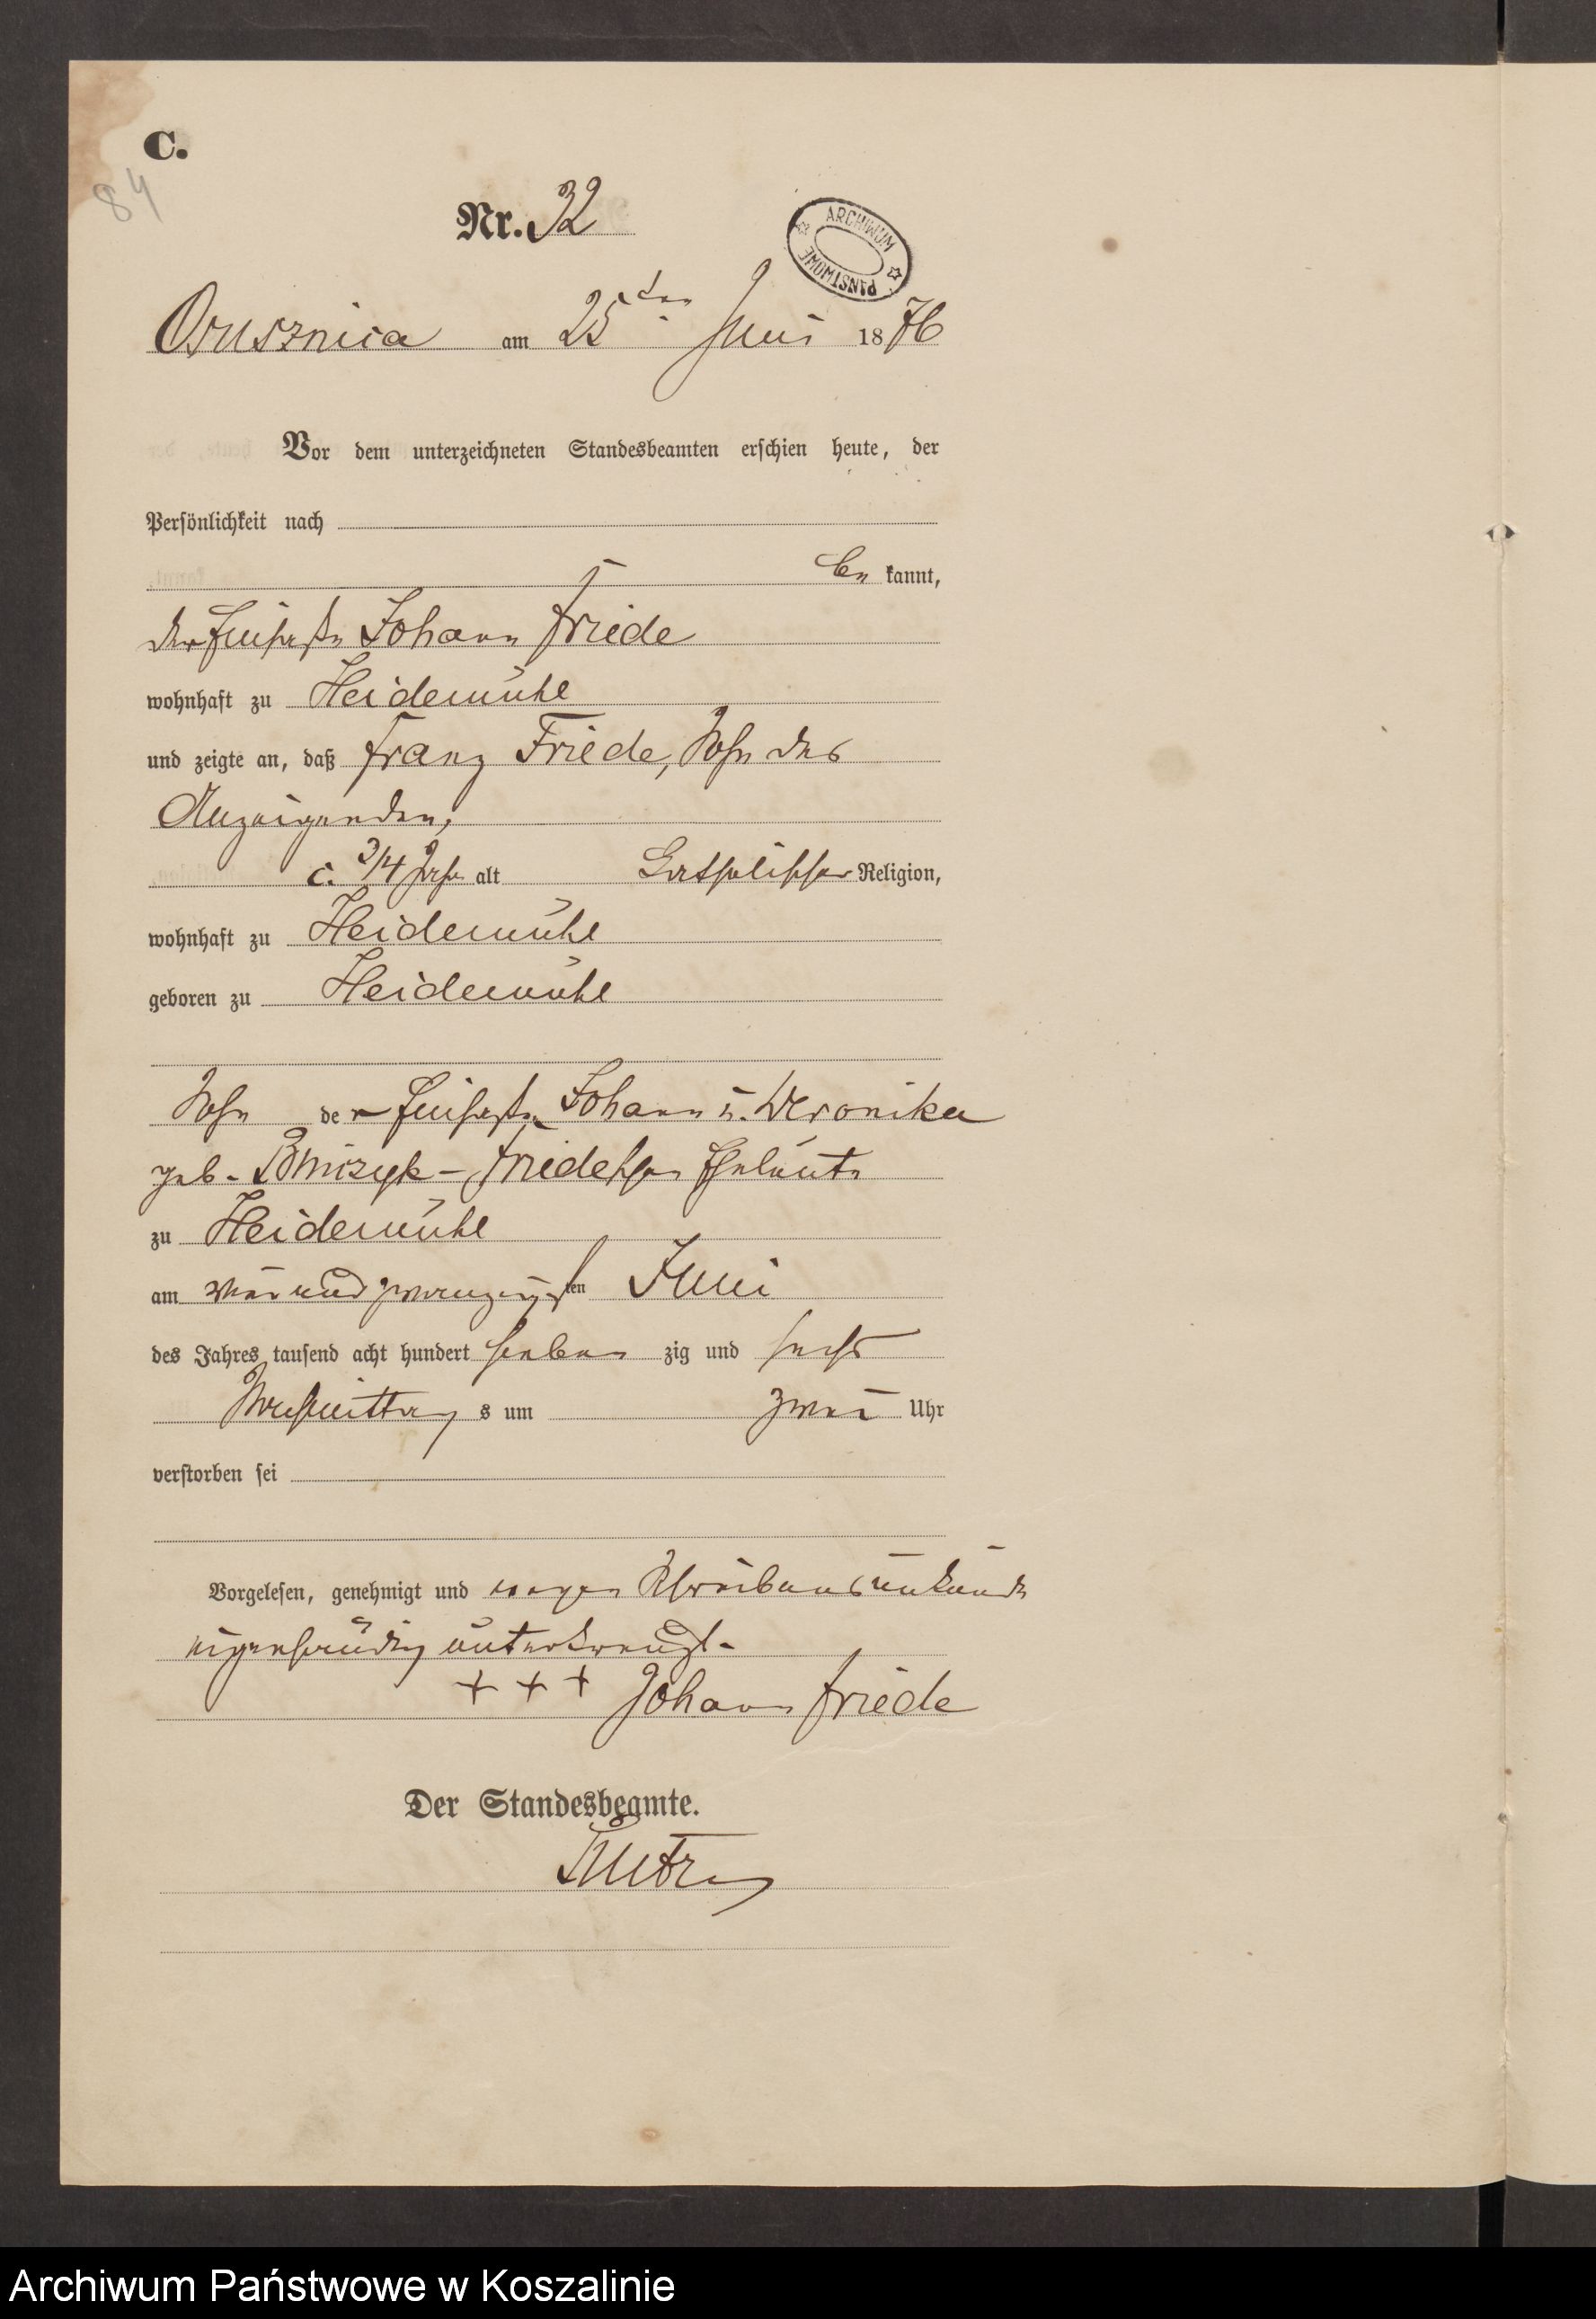 C.
84
Nr. 32
ARCHIWUM PAŃSTWOWE
Osusznica am 25ten Juni 1876
Vor dem unterzeichneten Standesbeamten erschien heute, der
Persönlichkeit nach
be kannt,
der Johann Friede
wohnhaft zu Heidemühl
und zeigte an, daß Franz Friede, Sohn des
Anzeigenden,
c. 3/4 Jahr alt katholischer Religion,
wohnhaft zu Heidemühl
geboren zu Heidemühl
Sohn der Johann u. Weronika
geb. Friedeschen Eheleute
zu Heidemühl
am vier und zwanzigsten Juni
des Jahres tausend acht hundert sieben zig und sechs
Nachmittag s um zwei Uhr
verstorben sei
Vorgelesen, genehmigt und wegen Schreibensunkunde
eigenhändig unterkreuzt.
+ + + Johann Friede
Der Standesbeamte.
Archiwum Państwowe w Koszalinie